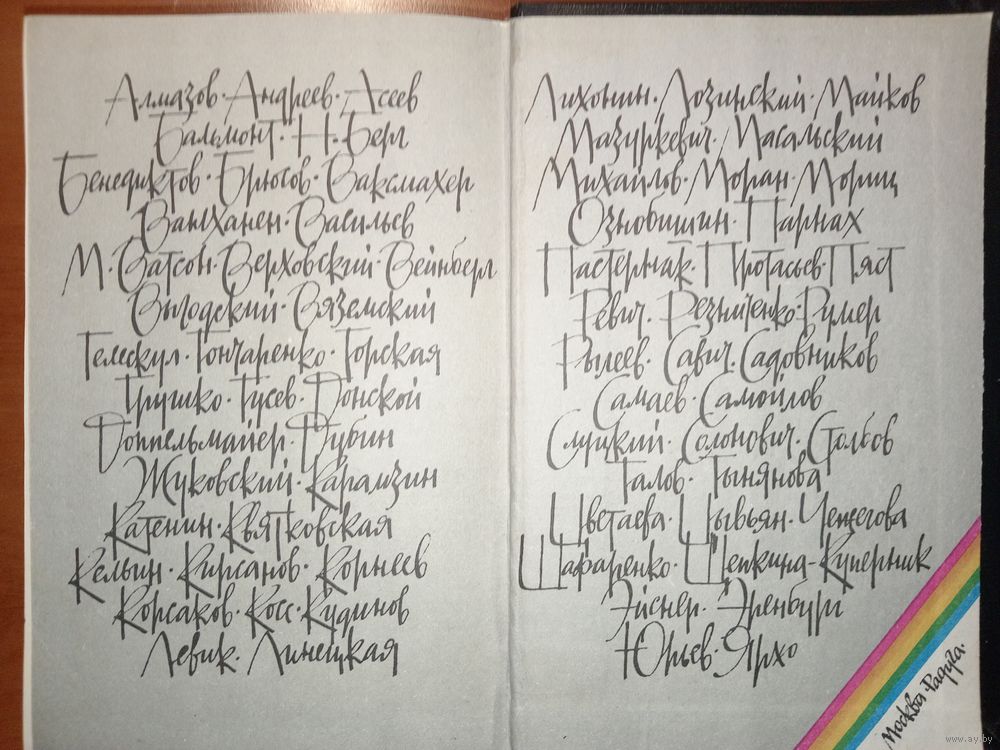 Алмазов · Андреев · Асеев
Бальмонт · Н. Берг
Бенедиктов · Брюсов · Ваксмахер
Ванханен · Васильев
М. Ватсон · Верховский · Вейнберг
Выгодский · Вяземский
Гелескул · Гончаренко · Горская
Грушко · Гусев · Донской
Доппельмайер · Дубин
Жуковский · Карамзин
Катенин · Квятковская
Кельин · Кирсанов · Корнеев
Корсаков · Косс · Кудинов
Левик · Линецкая
Лихонин · Лозинский · Майков
Мазуркевич · Масальский
Михайлов · Моран · Мориц
Ознобишин · Парнах
Пастернак · Протасьев · Пяст
Ревич · Резниченко · Румер
Рылеев · Савич · Садовников
Самаев · Самойлов
Слуцкий · Солонович · Столбов
Талов · Тынянова
Цветаева · Цывьян · Чежегова
Шафаренко · Щепкина-Куперник
Эйснер · Эренбург
Юрьев · Ярхо
Москва · Радуга ·
www.ay.by